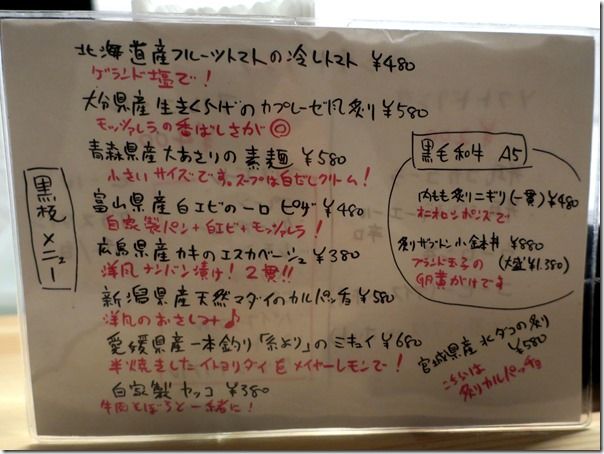 北海道産フルーツトマトの冷しトマト ¥480
ゲランド塩で!
大分県産 生きくらげのカプレーゼ風炙り ¥580
モッツァレラの香ばしさが◎
青森県産大あさりの素麺 ¥580
小さいサイズです。スープは白だしクリーム!
富山県産白エビの一口ピザ ¥480
自家製パン+白エビ+モッツァレラ!
広島県産カキのエスカベーシュ ¥380
洋風ナンバン漬け! 2貫!!
新潟県産天然マダイのカルパッチョ ¥580
洋風のおさしみ♪
愛媛県産一本釣り「糸より」のミキュイ ¥680
半焼きしたイトヨリダイをメイヤーレモンで!
自家製ヤッコ ¥380
牛肉そぼろと一緒に!
黒板メニュー
黒毛和牛 A5
内もも炙りニギリ(一貫) ¥480
オニオンポンズで
炙りザブトン小丼 ¥880
ブランド玉子の (大盛¥1,380)
卵黄がけです
宮城県産 水ダコの炙り
¥580
こちらは
炙りカルパッチョ